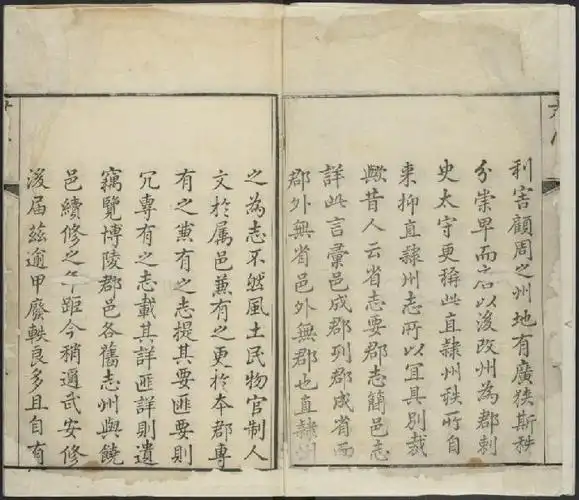 利害顧周之州地有廣狹斯秩
分崇卑而六以後改州為郡刺
史太守更稱此直隸州秩所自
来抑直隸州志所以宜具別裁
歟昔人云省志要郡志簡邑志
詳此言彙邑成郡列郡成省而
郡外無省邑外無郡也直隸州
之為志不然風土民物官制人
文於属邑兼有之更於本郡專
有之兼有之志提其要匪要則
冗專有之志載其詳匪詳則遺
竊覽博陵郡邑各舊志州與饒
邑續修之年距今稍邇武安修
後届茲逾甲廢軼良多且自有